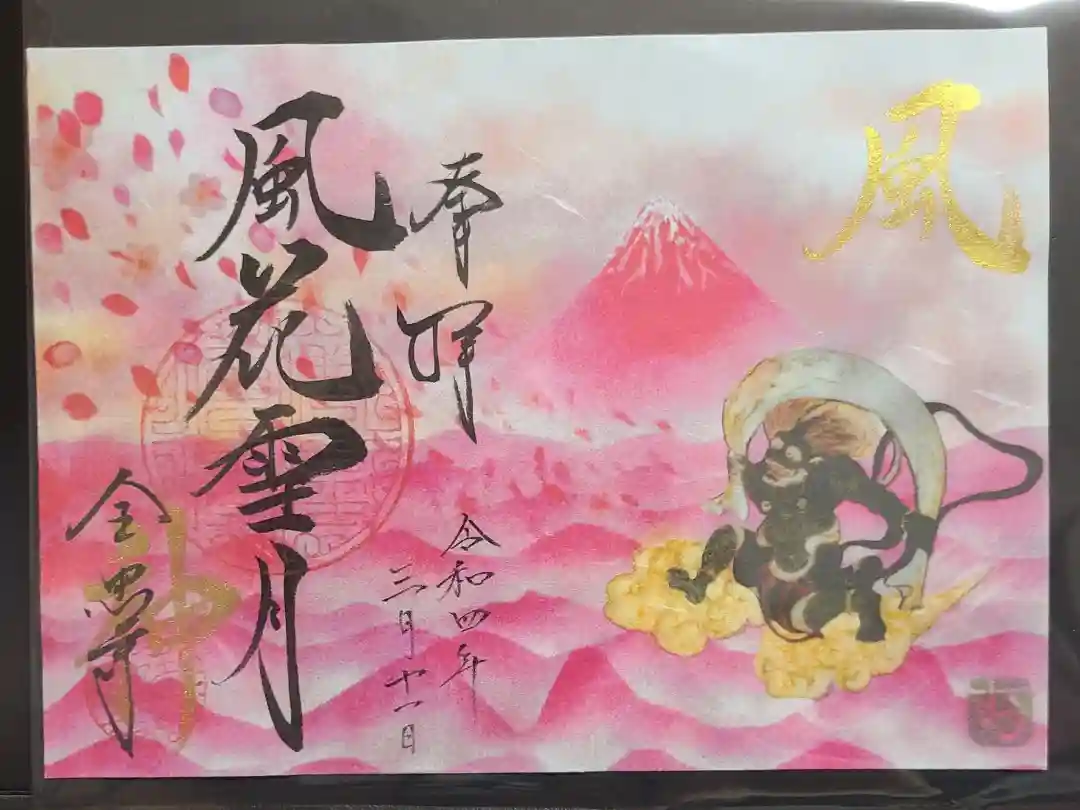 風
奉拝
令和四年
三月十一日
風花雪月